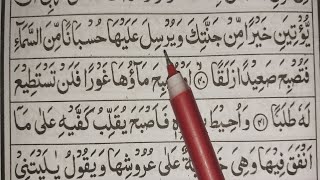 يُّؤْتِيَنِ خَيْرًا مِّنْ جَنَّتِكَ وَيُرْسِلَ عَلَيْهَا حُسْبَانًا مِّنَ السَّمَآءِ
فَتُصْبِحَ صَعِيْدًا زَلَقًا ﴿۴۰﴾ اَوْ يُصْبِحَ مَآؤُهَا غَوْرًا فَلَنْ تَسْتَطِيْعَ
لَهٗ طَلَبًا ﴿۴۱﴾ وَاُحِيْطَ فَاَصْبَحَ يُقَلِّبُ كَفَّيْهِ عَلٰى مَآ
اَنْفَقَ فِيْهَا وَهِيَ عَلٰى عُرُوْشِهَا وَيَقُوْلُ يٰلَيْتَنِيْ